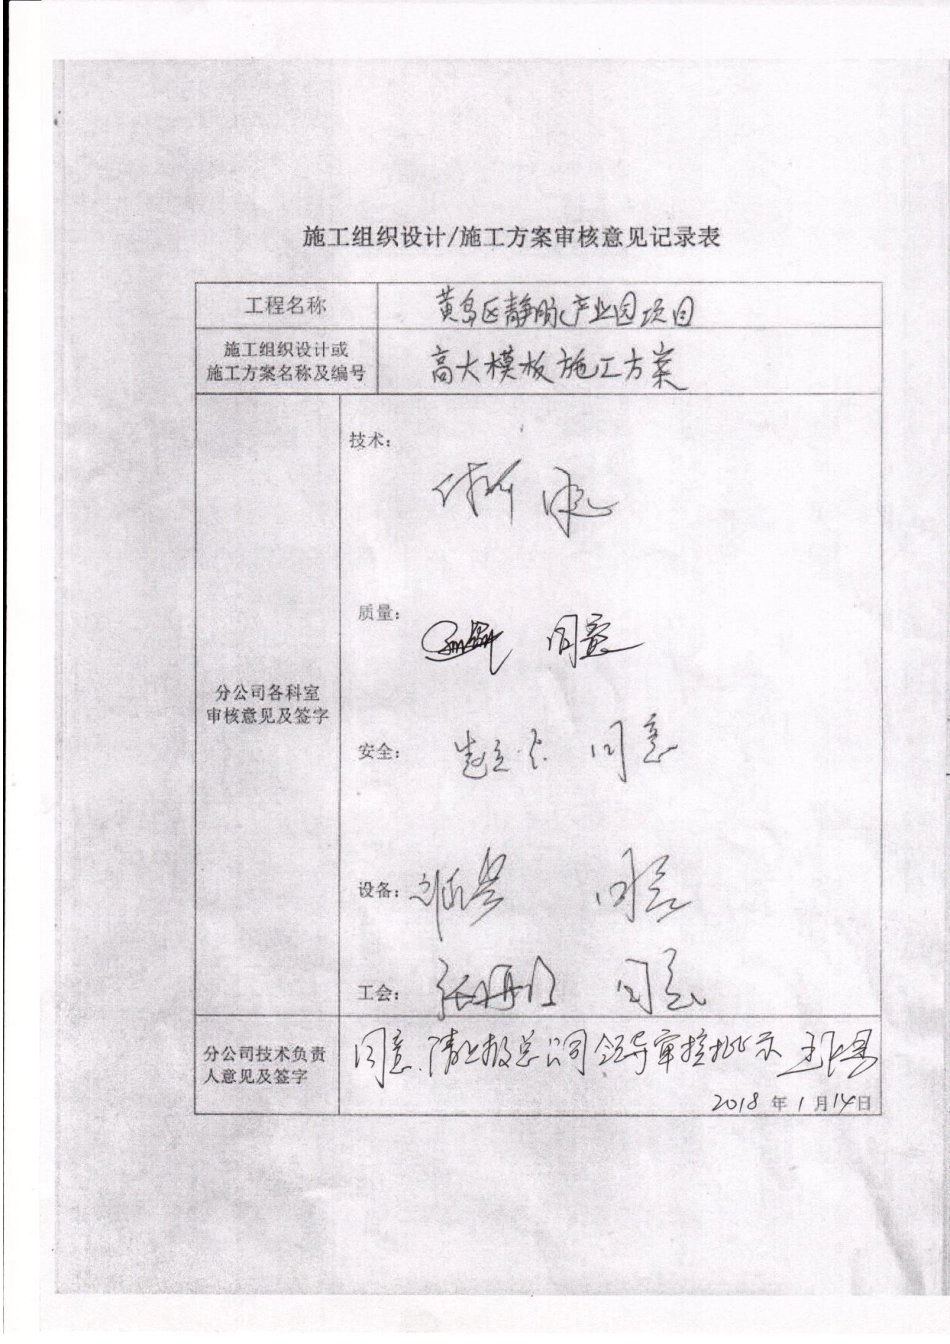 施工组织设计/施工方案审核意见记录表
工程名称
黄岛区静脉产业园项目
施工组织设计或
施工方案名称及编号
高大模板施工方案
分公司各科室
审核意见及签字
技术:
质量:
同意
安全:
同意
设备:
同意
工会:
同意
分公司技术负责
人意见及签字
同意.请上报总公司领导审核批示
2018 年 1 月 14 日